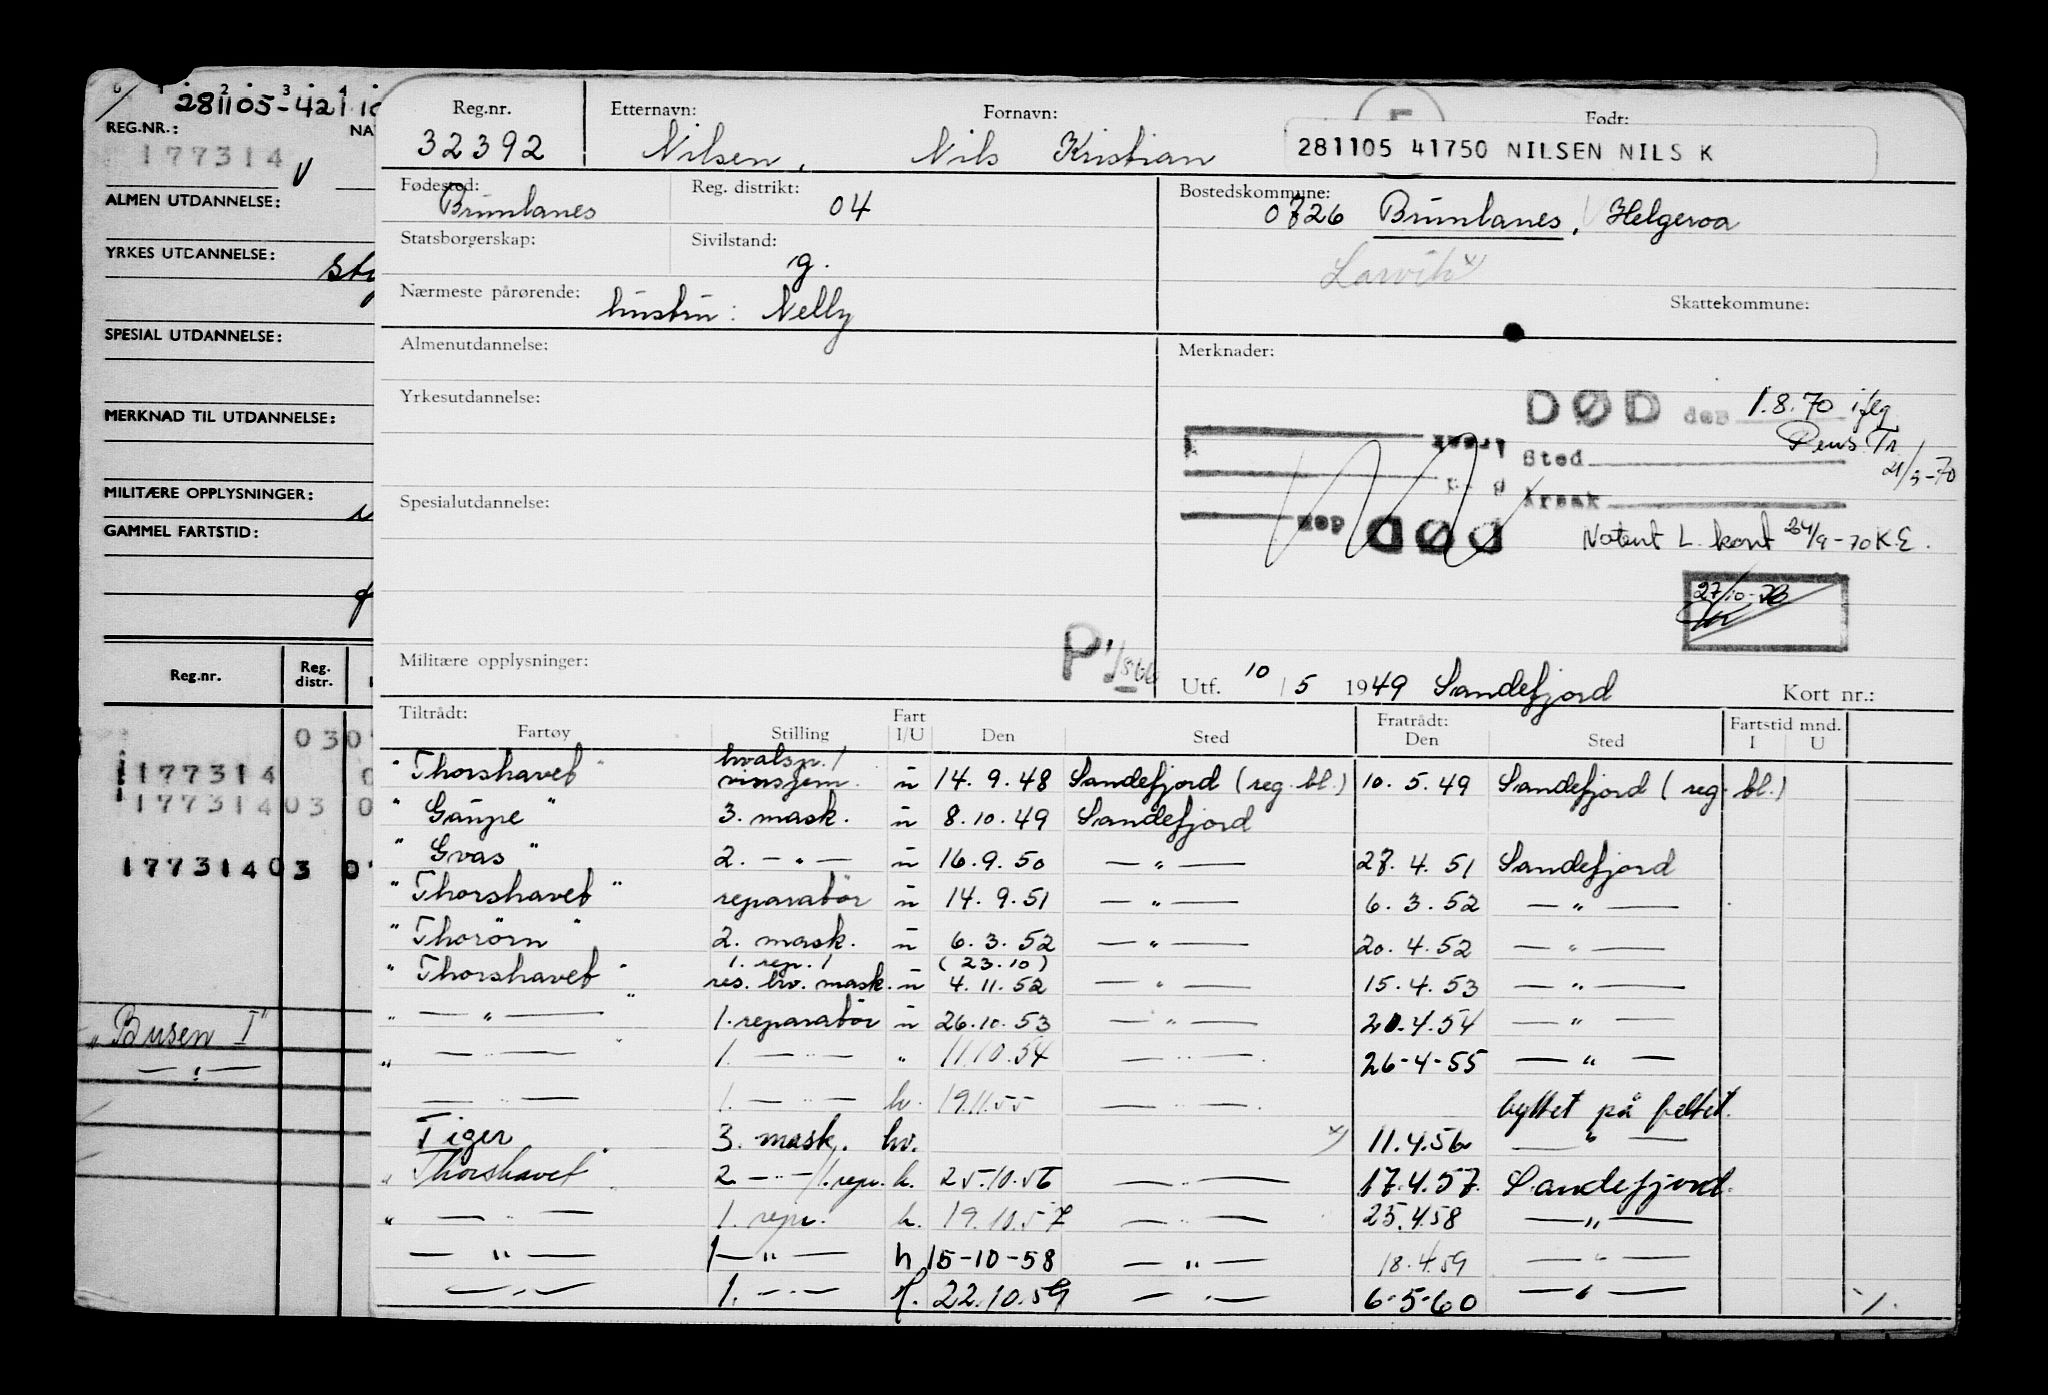 6 1 2 3 4
281105-421
REG.NR.: NA
177314 V
ALMEN UTDANNELSE:
YRKES UTDANNELSE:
SPESIAL UTDANNELSE:
MERKNAD TIL UTDANNELSE:
MILITÆRE OPPLYSNINGER:
GAMMEL FARTSTID:
Reg.nr. Reg. distr.
030
177314 0
177314 03 0
177314 03 0
„Busen I"
— " —
Reg.nr. Etternavn: Fornavn: Født:
32392 Nilsen, Nils Kristian 281105 41750 NILSEN NILS K
Fødested: Reg. distrikt: Bostedskommune:
Brunlanes 04 0726 Brunlanes, Helgeroa
Statsborgerskap: Sivilstand:
g. Larvik x)
Nærmeste pårørende: Skattekommune:
hustru: Nelly
Almenutdannelse: Merknader:
Yrkesutdannelse:
DØD den 1.8.70 iflg
Pens.Tr.
Sted
21/9-70
Årsak
DØD den
Spesialutdannelse:
Notert L. kort 24/9-70 K.E.
27/10-70
Militære opplysninger: P
Utf. 10/5 1949 Sandefjord Kort nr.:
Tiltrådt: Fart Fratrådt: Fartstid mnd.
Fartøy Stilling I/U Den Sted Den Sted I U
hvalsp./
"Thorshavet" vinsjem. u 14.9.48 Sandefjord (reg.bl.) 10.5.49 Sandefjord (reg.bl.)
"Gaupe" 3. mask. u 8.10.49 Sandefjord
"Gvas" 2. — " — u 16.9.50 — " — 27.4.51 Sandefjord
"Thorshavet" reparatør u 14.9.51 — " — 6.3.52 — " —
"Thorørn" 2. mask. u 6.3.52 — " — 20.4.52 — " —
1. rep./ (23.10)
"Thorshavet" res. hv. mask. u 4.11.52 — " — 15.4.53 — " —
" — " — " 1. reparatør u 26.10.53 — " — 20.4.54 — " —
" — " — 1. — " — " 11.10.54 — " — 26-4-55 — " —
— " — 1. — " — hv. 19.11.55 — " — byttet på feltet.
Tiger 3. mask. hv. x) 11.4.56 — " —
"Thorshavet" 2. — " —/1. rep. h. 25.10.56 — " — 17.4.57. Sandefjord.
" — " — 1. rep. h. 19.10.57 — " — 25.4.58 — " —
— " — 1 — " — h 15-10-58 — " — 18.4.59 — " —
— " — 1. — " — h. 22.10.59 — " — 6-5-60 — " —